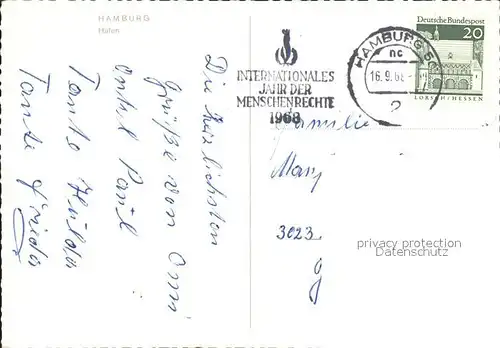 HAMBURG
Hafen
Die herzlichsten
Grüße von Omi
Onkel Paul
Tante Hilde
Tante Frieda
INTERNATIONALES
JAHR DER
MENSCHENRECHTE
1968
HAMBURG
nc
16.9.68
2
Deutsche Bundespost
20
LORSCH/HESSEN
Familie
3023
privacy protection
Datenschutz